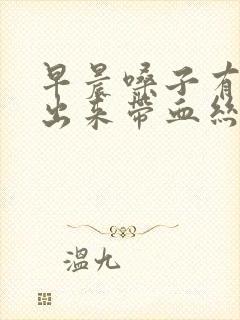 早晨嗓子有
出来带血丝
溫九